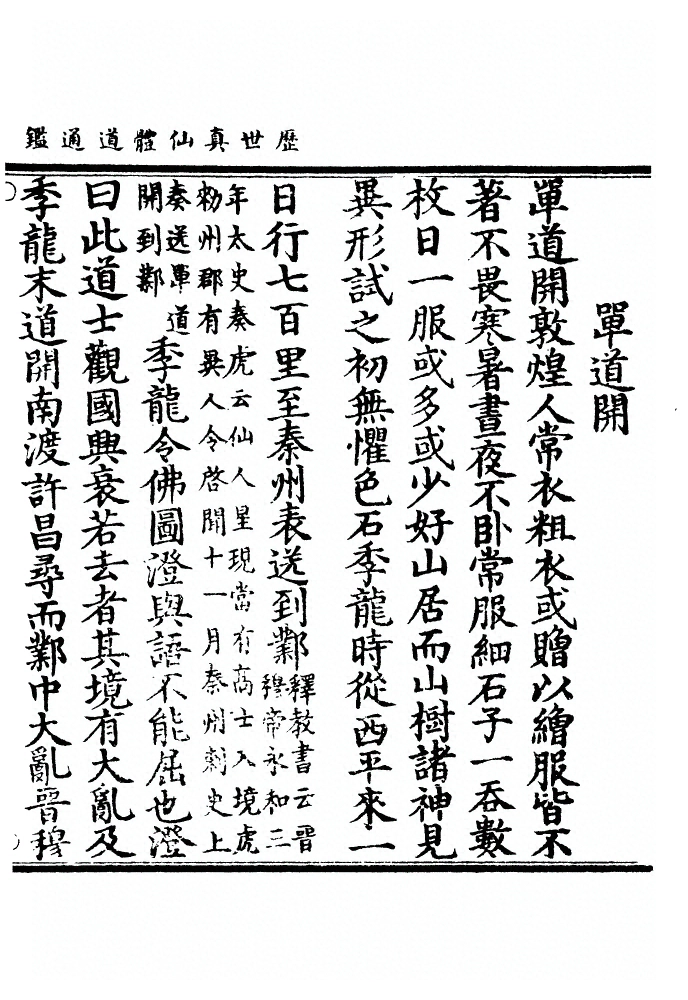 歷世真仙體道通鑑
單道開
單道開敦煌人常衣粗衣或贈以繒服皆不
著不畏寒暑晝夜不臥常服細石子一吞數
枚日一服或多或少好山居而山樹諸神見
異形試之初無懼色石季龍時從西平來一
日行七百里至秦州表送到鄴釋教書云晉
穆帝永和三
年太史奏虎云仙人星現當有高士入境虎
勑州郡有異人令啓聞十一月秦州刺史上
奏送單道
開到鄴季龍令佛圖澄與語不能屈也澄
曰此道士觀國興衰若去者其境有大亂及
季龍末道開南渡許昌尋而鄴中大亂晉穆